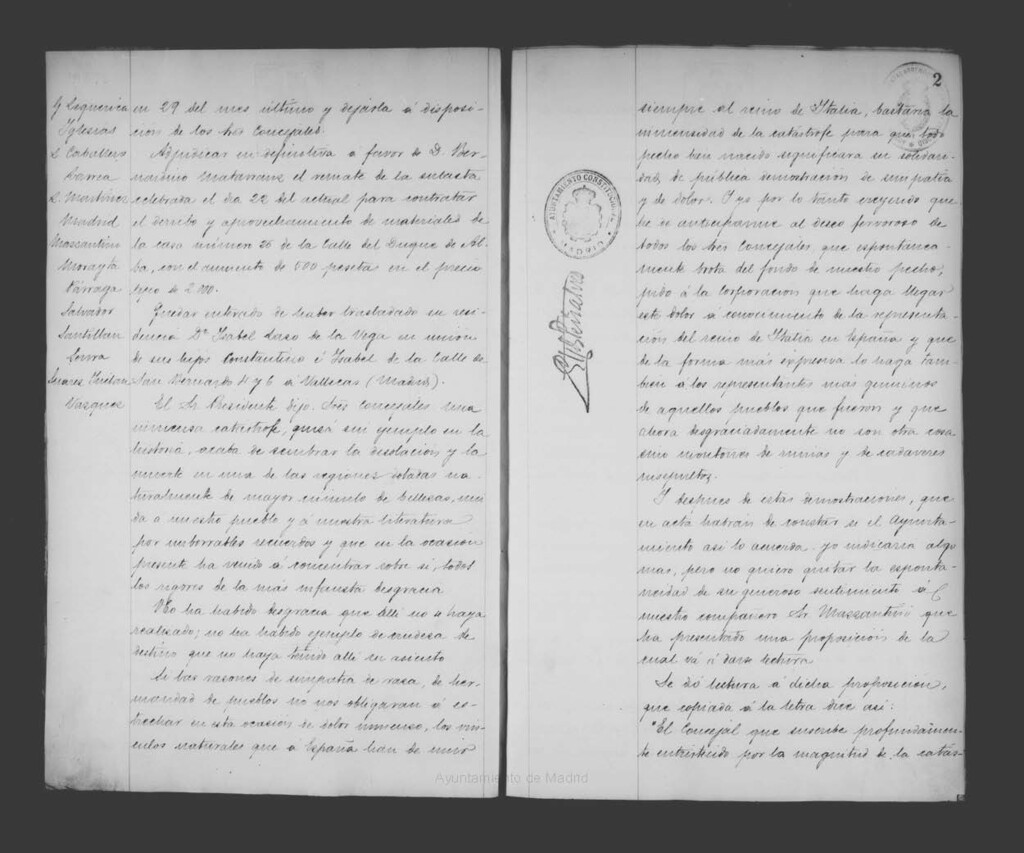 G Ezquerra
Iglesias
L Caballero
Larrea
L Martinez
Madrid
Mazzantini
Morayta
Párraga
Salvador
Santillan
Serra
Suarez Inclan
Vazquez
en 29 del mes último y dejarla á disposi-
cion de los Sres Concejales.
Adjudicar en definitiva a favor de D. Ber-
nardino Matarranz el remate de la subasta
celebrada el dia 22 del actual para contratar
el derribo y aprovechamiento de materiales de
la casa número 26 de la Calle del Duque de Al-
ba, con el aumento de 500 pesetas en el precio
tipo de 2.000.
Quedar enterados de haber trasladado su resi-
dencia Dª Isabel Laso de la Vega en union
de sus hijos Constantino é Isabel de la Calle de
San Bernardo 4 y 6 á Vallecas (Madrid).
El Sr. Presidente dijo. Sres Concejales una
inmensa catástrofe, quizá sin ejemplo en la
historia, acaba de sembrar la desolación y la
muerte en una de las regiones dotadas na-
turalmente de mayor cúmulo de bellezas, uni-
da a nuestro pueblo y á nuestra literatura
por imborrables recuerdos y que en la ocasion
presente ha venido á concentrar sobre si, todos
los rigores de la más infausta desgracia
No ha habido desgracia que alli no se haya
realizado; no ha habido ejemplo de crudeza de
destino que no haya tenido alli su asiento
Si las razones de simpatia de raza, de her-
mandad de pueblos no nos obligaran á es-
trechar en esta ocasión de dolor inmenso, los vin-
culos naturales que á España han de unir
2
AYUNTAMIENTO CONSTITUCIONAL
siempre al reino de Italia, bastaria la
inmensidad de la catástrofe para que todo
pecho bien nacido significara su solidari-
dad, de pública demostracion de simpatia
y de dolor. Y yo por lo tanto creyendo que
he de anticiparme al deseo fervoroso de
todos los Sres Concejales que espontanea-
mente brota del fondo de nuestro pecho,
pido á la Corporacion que haga llegar
este dolor á conocimiento de la representa-
ción del reino de Italia en España y que
de la forma más expresiva lo haga tam-
bien á los representantes más genuinos
de aquellos pueblos que fueron y que
ahora desgraciadamente no son otra cosa
sino montones de ruinas y de cadáveres
insepultos.
Y despues de estas demostraciones, que
en acta habrán de constar si el Ayunta-
miento asi lo acuerda. yo indicaria algo
mas, pero no quiero quitar la esponta-
neidad de su generoso sentimiento á
nuestro compañero Sr. Mazzantini que
ha presentado una proposición de la
cual vá á darse lectura
Se dó lectura á dicha proposición,
que copiada á la letra dice asi:
"El Concejal que suscribe profundamen-
te entristecido por la magnitud de la catás-
Ayuntamiento de Madrid